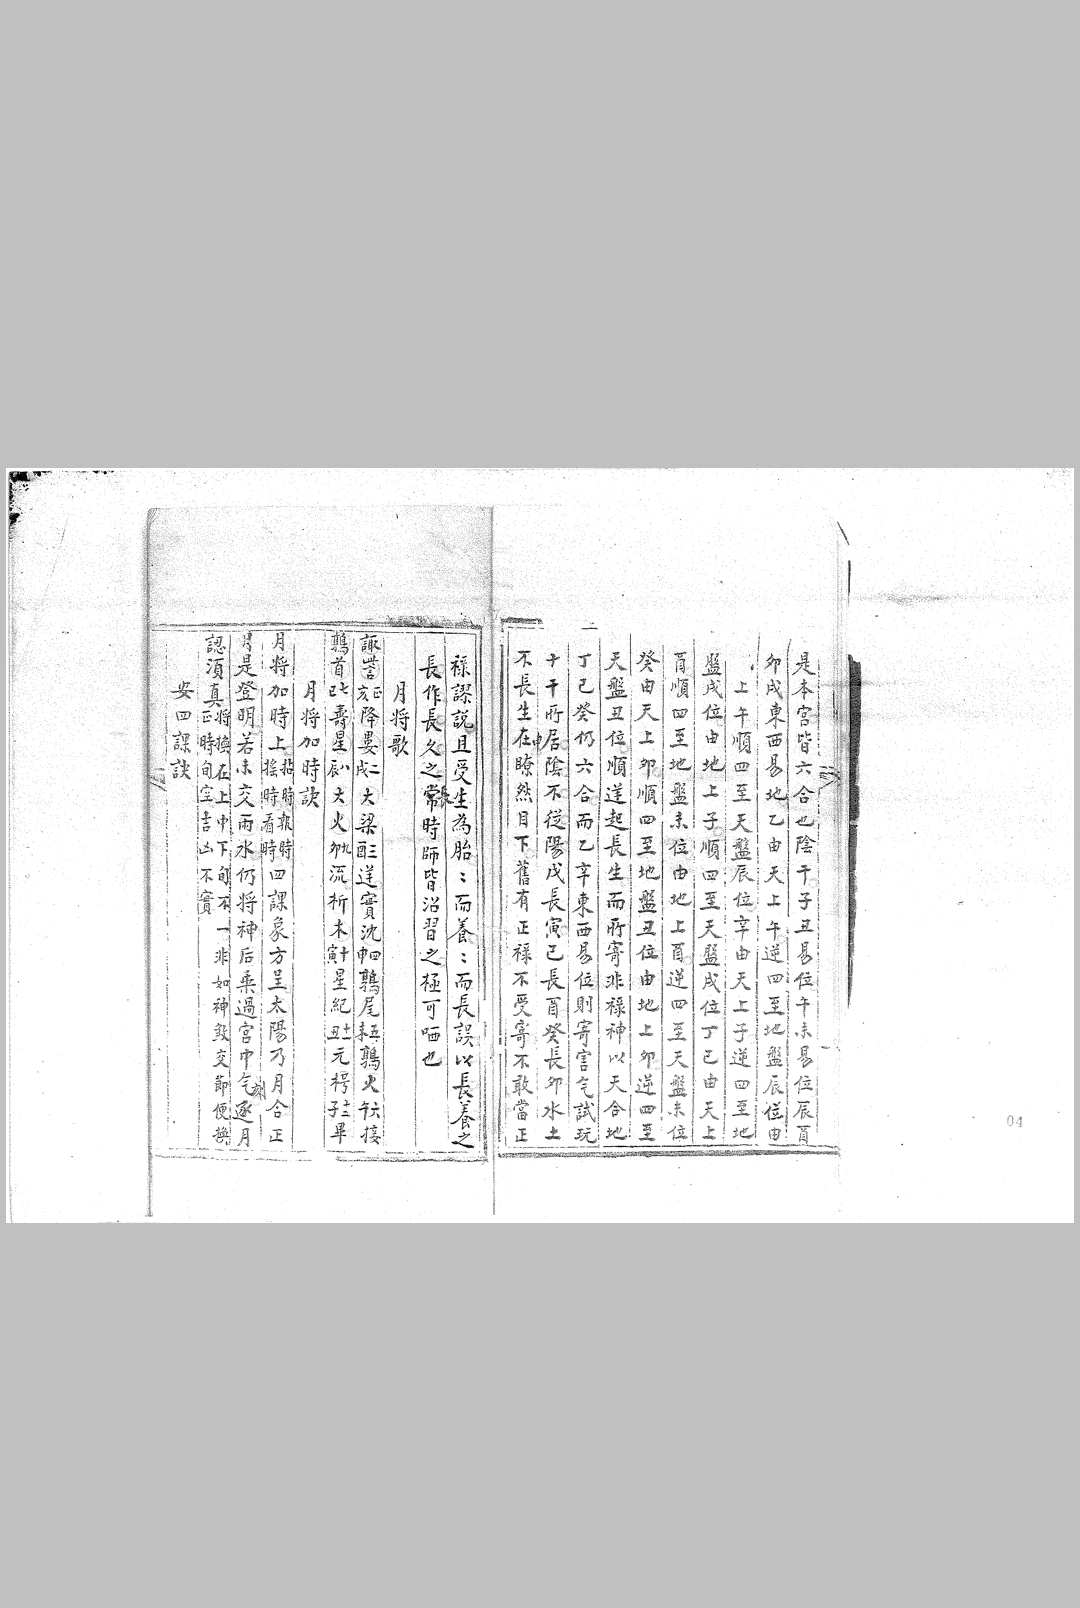 是本宮皆六合也陰干子丑易位午未易位辰酉
卯戌東西易地乙由天上午逆四至地盤辰位由
上午順四至天盤辰位辛由天上子逆四至地
盤戌位由地上子順四至天盤戌位丁己由天上
酉順四至地盤未位由地上酉逆四至天盤未位
癸由天上卯順四至地盤丑位由地上卯逆四至
天盤丑位順逆起長生而所寄非祿神以天合地
丁己癸仍六合而乙辛東西易位則寄宮乞試玩
十干所居陰不從陽戊長寅己長酉癸長卯水土
不長生在申瞭然目下舊有正祿不受寄不敢當正
祿謬説且受生為胎〻而養〻而長誤以長養之
長作長久之長常時師皆沿習之極可哂也
月将歌
諏訾正亥降婁二戌大梁三酉逆實沈四申鶉尾五未鶉火六午接
鶉首七巳壽星八辰大火九卯流析木十寅星紀十一丑元枵十二子畢
月将加時訣
月将加時上拈時報時摇時看時四課象方呈太陽乃月合正
月是登明若未交雨水仍将神后乘過宮中气刻逐月
認須真将換在上中下旬不一非如神殺交節便換正時旬空吉凶不實
安四課訣
二
04